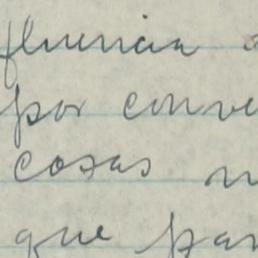 fluencia
por conve
cosas
que par